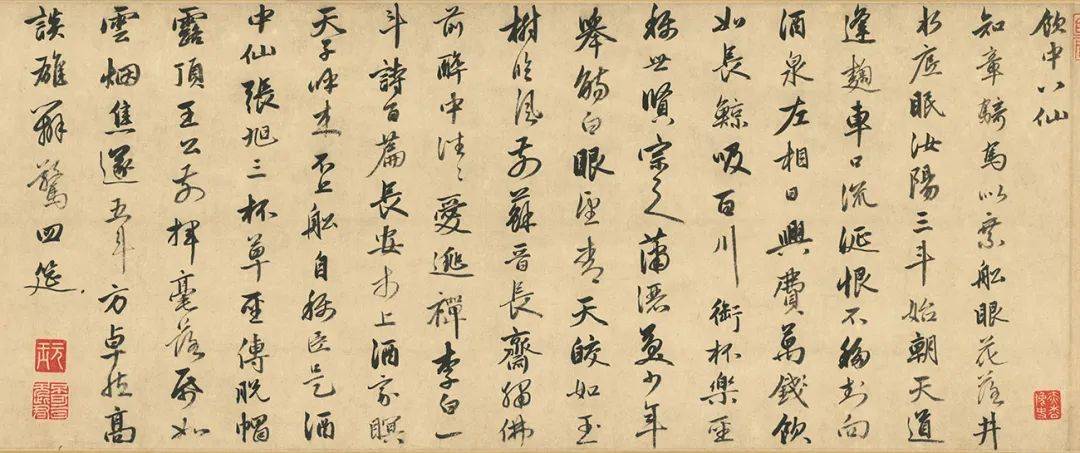 飲中八仙
知章騎馬似乘舩眼花落井
水底眠汝陽三斗始朝天道
逢麴車口流涎恨不移封向
酒泉左相日興費萬錢飲
如長鯨吸百川銜杯樂聖
稱世賢宗之蕭洒美少年
舉觴白眼望青天皎如玉
樹臨風前蘇晉長齋繡佛
前醉中往々愛逃禪李白一
斗詩百篇長安市上酒家瞑
天子呼来不上舩自稱臣是酒
中仙張旭三杯草聖傳脫帽
露頂王公前揮毫落紙如
雲烟焦遂五斗方卓然高
談雄辯驚四筵